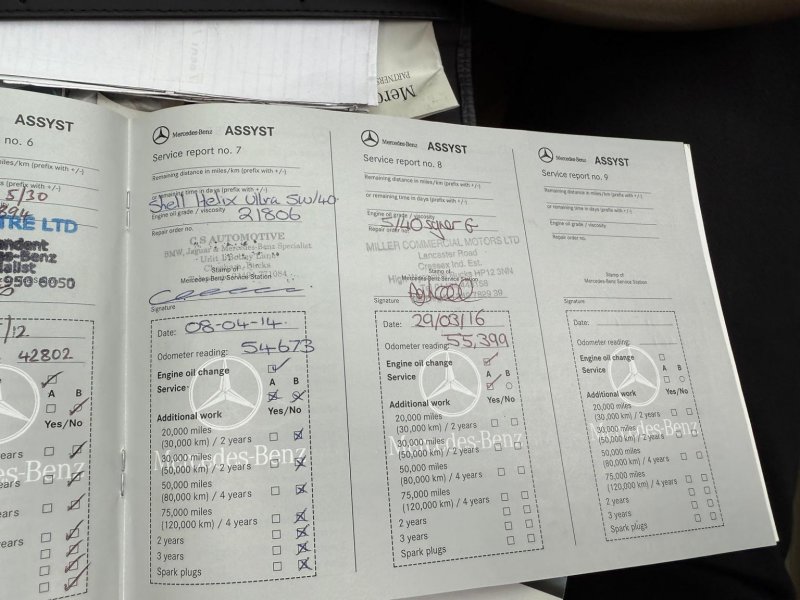 Merc
PARTNERS
ASSYST
no. 6
miles/km (prefix with +/-)
(prefix with +/-)
5/30
894
TRE LTD
ndent
es-Benz
ialist
950 6050
/12
42802
A B
Yes/No
years
years
years
s-Benz
Mercedes-Benz ASSYST
Service report no. 7
Remaining distance in miles/km (prefix with +/-)
or remaining time in days (prefix with +/-)
Shell Helix Ultra 5W/40
Engine oil grade / viscosity
21806
Repair order no.
C.S AUTOMOTIVE
BMW, Jaguar & Mercedes-Benz Specialist
Stamp of
Mercedes-Benz Service Station
Signature
Date: 08-04-14
Odometer reading: 54673
Engine oil change
Service A B
Additional work Yes/No
20,000 miles
(30,000 km) / 2 years
30,000 miles
(50,000 km) / 2 years
50,000 miles
(80,000 km) / 4 years
75,000 miles
(120,000 km) / 4 years
2 years
3 years
Spark plugs
Mercedes-Benz
Mercedes-Benz ASSYST
Service report no. 8
Remaining distance in miles/km (prefix with +/-)
or remaining time in days (prefix with +/-)
Engine oil grade / viscosity
5/40
Repair order no.
MILLER COMMERCIAL MOTORS LTD
Lancaster Road
Cressex Ind. Est.
Stamp of
HP12 3NN
Mercedes-Benz Service Station
Signature
Date: 29/03/16
Odometer reading: 55,399
Engine oil change
Service A B
Additional work Yes/No
20,000 miles
(30,000 km) / 2 years
30,000 miles
(50,000 km) / 2 years
50,000 miles
(80,000 km) / 4 years
75,000 miles
(120,000 km) / 4 years
2 years
3 years
Spark plugs
Mercedes-Benz
Mercedes-Benz ASSYST
Service report no. 9
Remaining distance in miles/km (prefix with +/-)
or remaining time in days (prefix with +/-)
Engine oil grade / viscosity
Repair order no.
Stamp of
Mercedes-Benz Service Station
Signature
Date:
Odometer reading:
Engine oil change
Service A B
Additional work Yes/No
20,000 miles
(30,000 km) / 2 years
30,000 miles
(50,000 km) / 2 years
50,000 miles
(80,000 km) / 4 years
75,000 miles
(120,000 km) / 4 years
2 years
3 years
Spark plugs
Mercedes-Benz